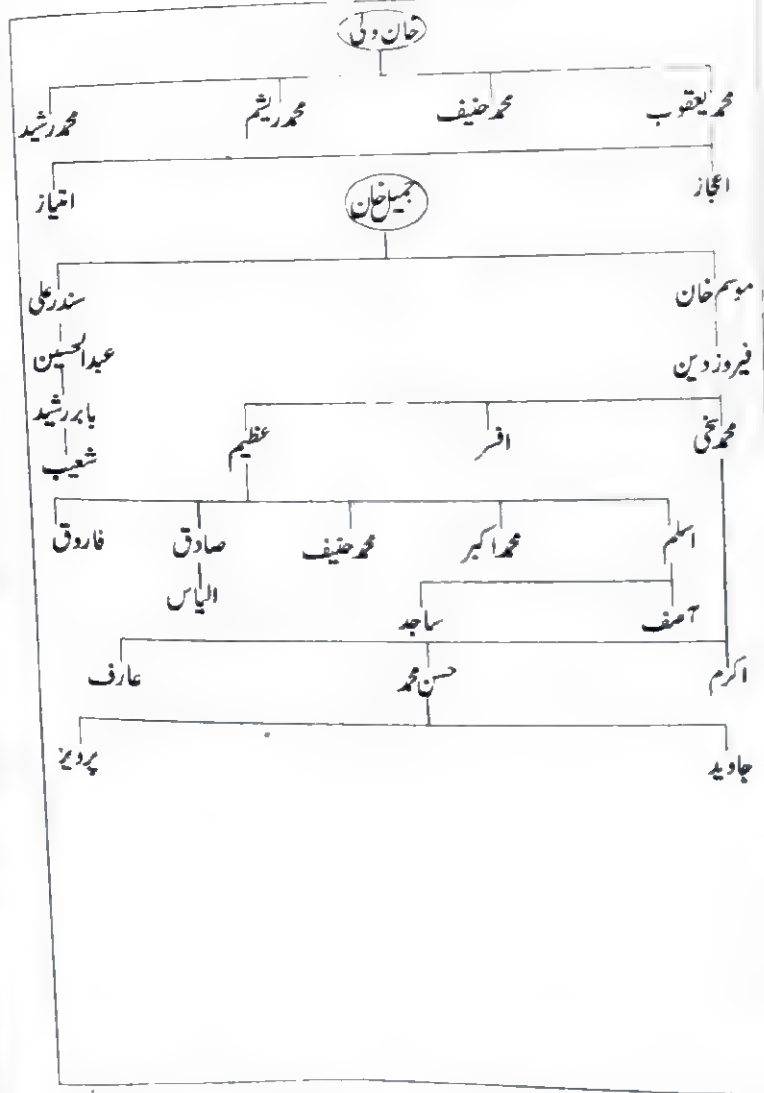 خان ولی
محمد یعقوب محمد حنیف محمد ریشم محمد رشید
اعجاز امتیاز
جمیل خان
موسم خان سندر علی
فیروز دین عبدالحسین
بابر رشید
محمد سخی افسر عظیم
شعیب
اسلم محمد اکبر محمد حنیف صادق فاروق
الیاس
آصف ساجد
اکرم حسن محمد عارف
جاوید پرویز